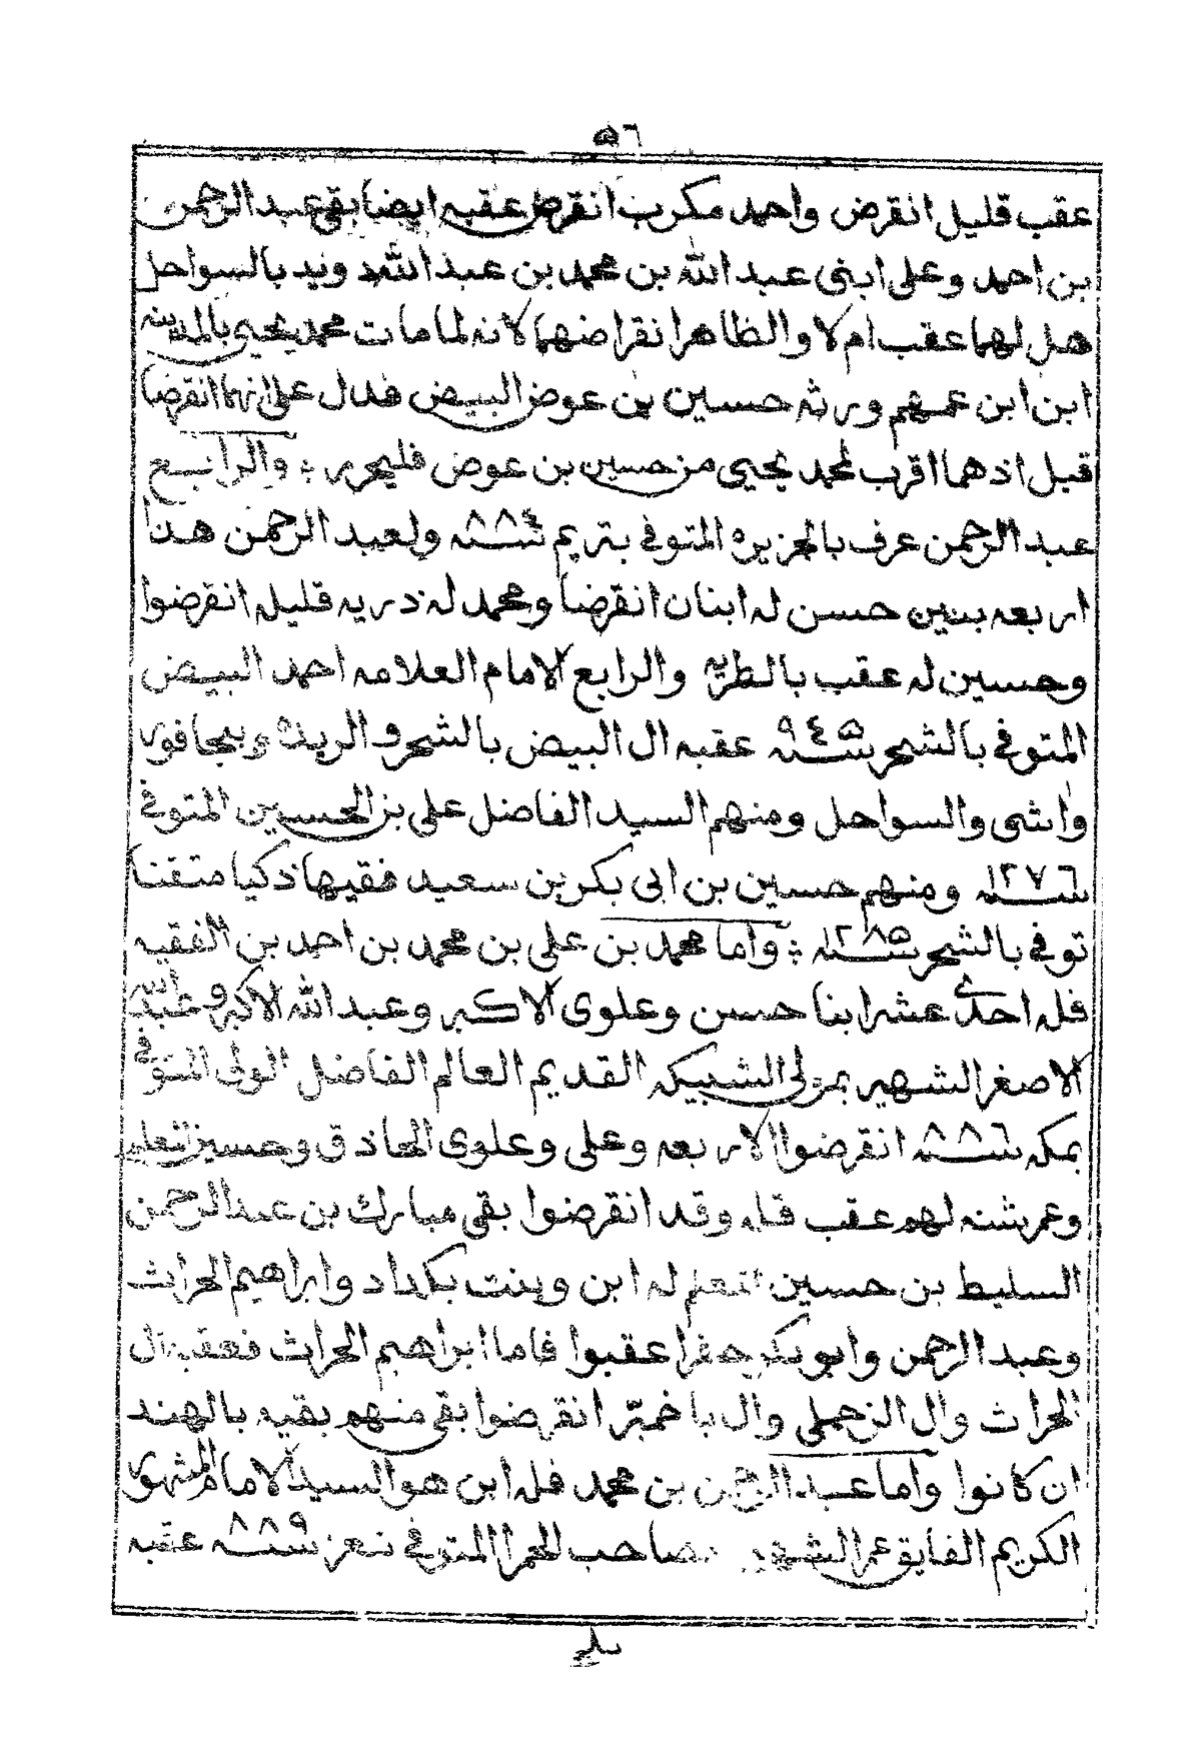 ٥٦
عقب قليل انقرض واحمد مكرب انقرض عقبه ايضا بقى عبد الرحمن
بن احمد وعلى ابنى عبد الله بن محمد بن عبد الله وند بالسواحل
هل لهما عقب ام لا والظاهر انقراضهما لانه لما مات محمد يحيى بالمدينه
ابن ابن عمهم ورثه حسين بن عوض البيض فدل على انهما انقرضا
قبل اذ هما اقرب لمحمد يحيى من حسين بن عوض فليحرر : والرابع
عبد الرحمن عرف بالجزيره المتوفي بتريم سنه ٨٨٤ ولعبد الرحمن هذا
اربعه بنين حسن له ابنان انقرضا ومحمد له ذريه قليله انقرضوا
وحسين له عقب بالطريه والرابع الامام العلامه احمد البيض
المتوفي بالشحر سنه ٩٤٥ عقبه ال البيض بالشحر والريده وبيجافور
واشى والسواحل ومنهم السيد الفاضل على بن الحسين المتوفي
سنه ١٢٧٦ ومنهم حسين بن ابى بكر بن سعيد فقيها ذكيا متقنا
توفي بالشحر سنه ١٢٨٥ : واما محمد بن على بن محمد بن احمد بن الفقيه
فله احدى عشر ابنا حسن وعلوى الاكبر وعبد الله الاكبر وعبد الله
الاصغر الشهير بمولى الشبيكه القديم العالم الفاضل الولى المتوفي
بمكه سنه ٨٨٦ انقرضوا الاربعه وعلى وعلوى الحاذق وحسين تنعلم
وعمر شنه لهم عقب قله وقد انقرضوا بقى مبارك بن عبد الرحمن
السليط بن حسين له ابن وبنت بكداد وابراهيم الحراث
وعبد الرحمن وابو بكر جفر اعقبوا فاما ابراهيم الحراث فعقبه ال
الحراث وال الزحملى وال با خمبر انقرضوا بقى منهم بقيه بالهند
ان كانوا واما عبد الرحمن بن محمد فله ابن هو السيد الامام المشهور
الكريم الفايق عمر الشهير بصاحب الحمرا المتوفي بتعز سنه ٨٨٩ عقبه